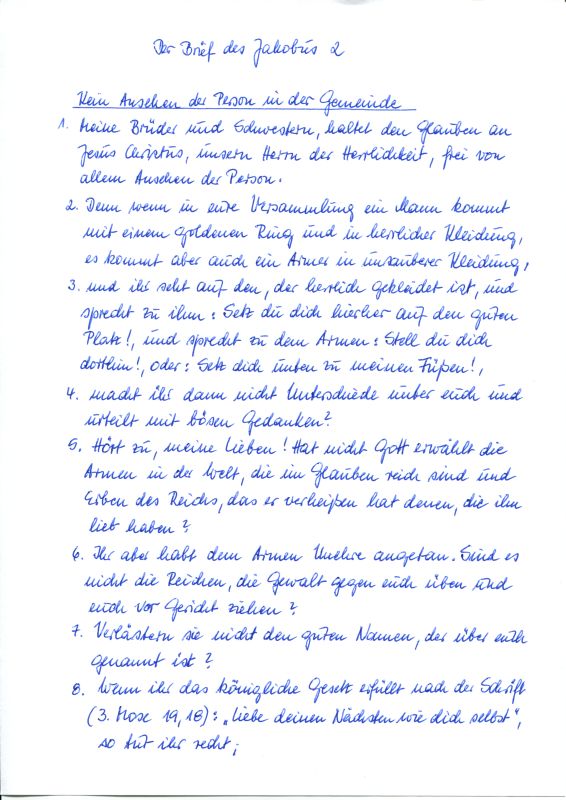 Der Brief des Jakobus 2
Kein Ansehen der Person in der Gemeinde
1. Meine Brüder und Schwestern, haltet den Glauben an
Jesus Christus, unsern Herrn der Herrlichkeit, frei von
allem Ansehen der Person.
2. Denn wenn in eure Versammlung ein Mann kommt
mit einem goldenen Ring und in herrlicher Kleidung,
es kommt aber auch ein Armer in unsauberer Kleidung,
3. und ihr seht auf den, der herrlich gekleidet ist, und
sprecht zu ihm: Setz du dich hierher auf den guten
Platz!, und sprecht zu dem Armen: Stell du dich
dorthin!, oder: Setz dich unten zu meinen Füßen!,
4. macht ihr dann nicht Unterschiede unter euch und
urteilt mit bösen Gedanken?
5. Hört zu, meine Lieben! Hat nicht Gott erwählt die
Armen in der Welt, die im Glauben reich sind und
Erben des Reichs, das er verheißen hat denen, die ihn
lieb haben?
6. Ihr aber habt dem Armen Unehre angetan. Sind es
nicht die Reichen, die Gewalt gegen euch üben und
euch vor Gericht ziehen?
7. Verlästern sie nicht den guten Namen, der über euch
genannt ist?
8. Wenn ihr das königliche Gesetz erfüllt nach der Schrift
(3. Mose 19,18): „Liebe deinen Nächsten wie dich selbst“,
so tut ihr recht;